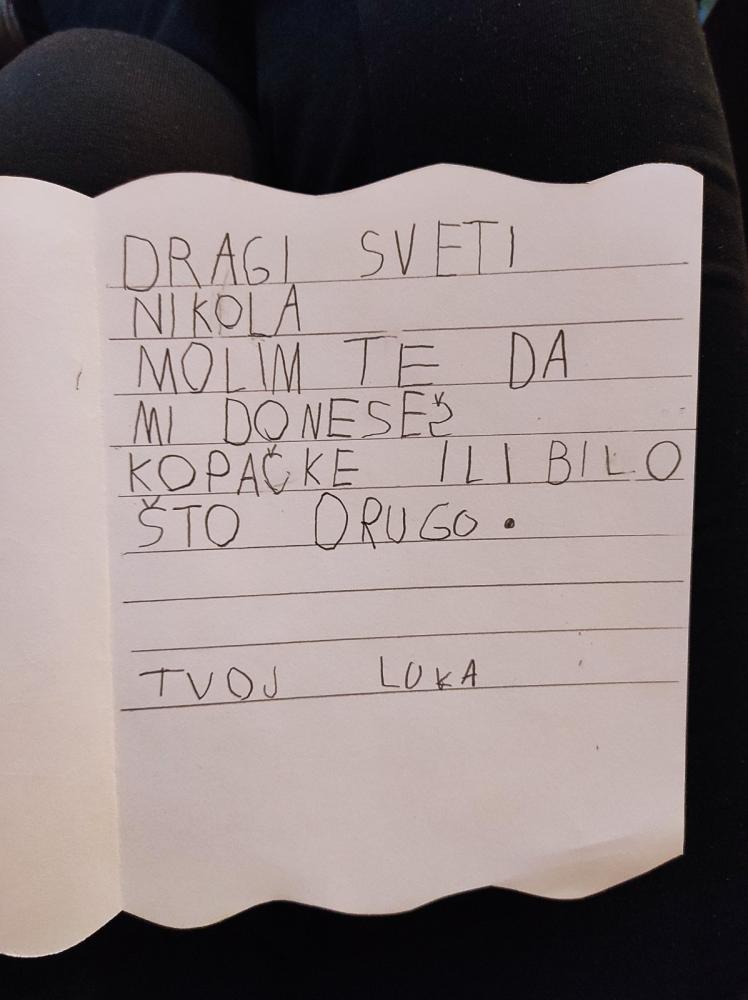 DRAGI SVETI
NIKOLA
MOLIM TE DA
MI DONESEŠ
KOPAČKE ILI BILO
ŠTO DRUGO.
TVOJ LUKA